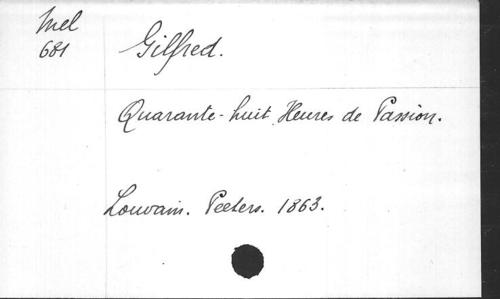 Mel
681
Gilfred.
Quarante-huit Heures de Passion.
Louvain. Peeters. 1863.